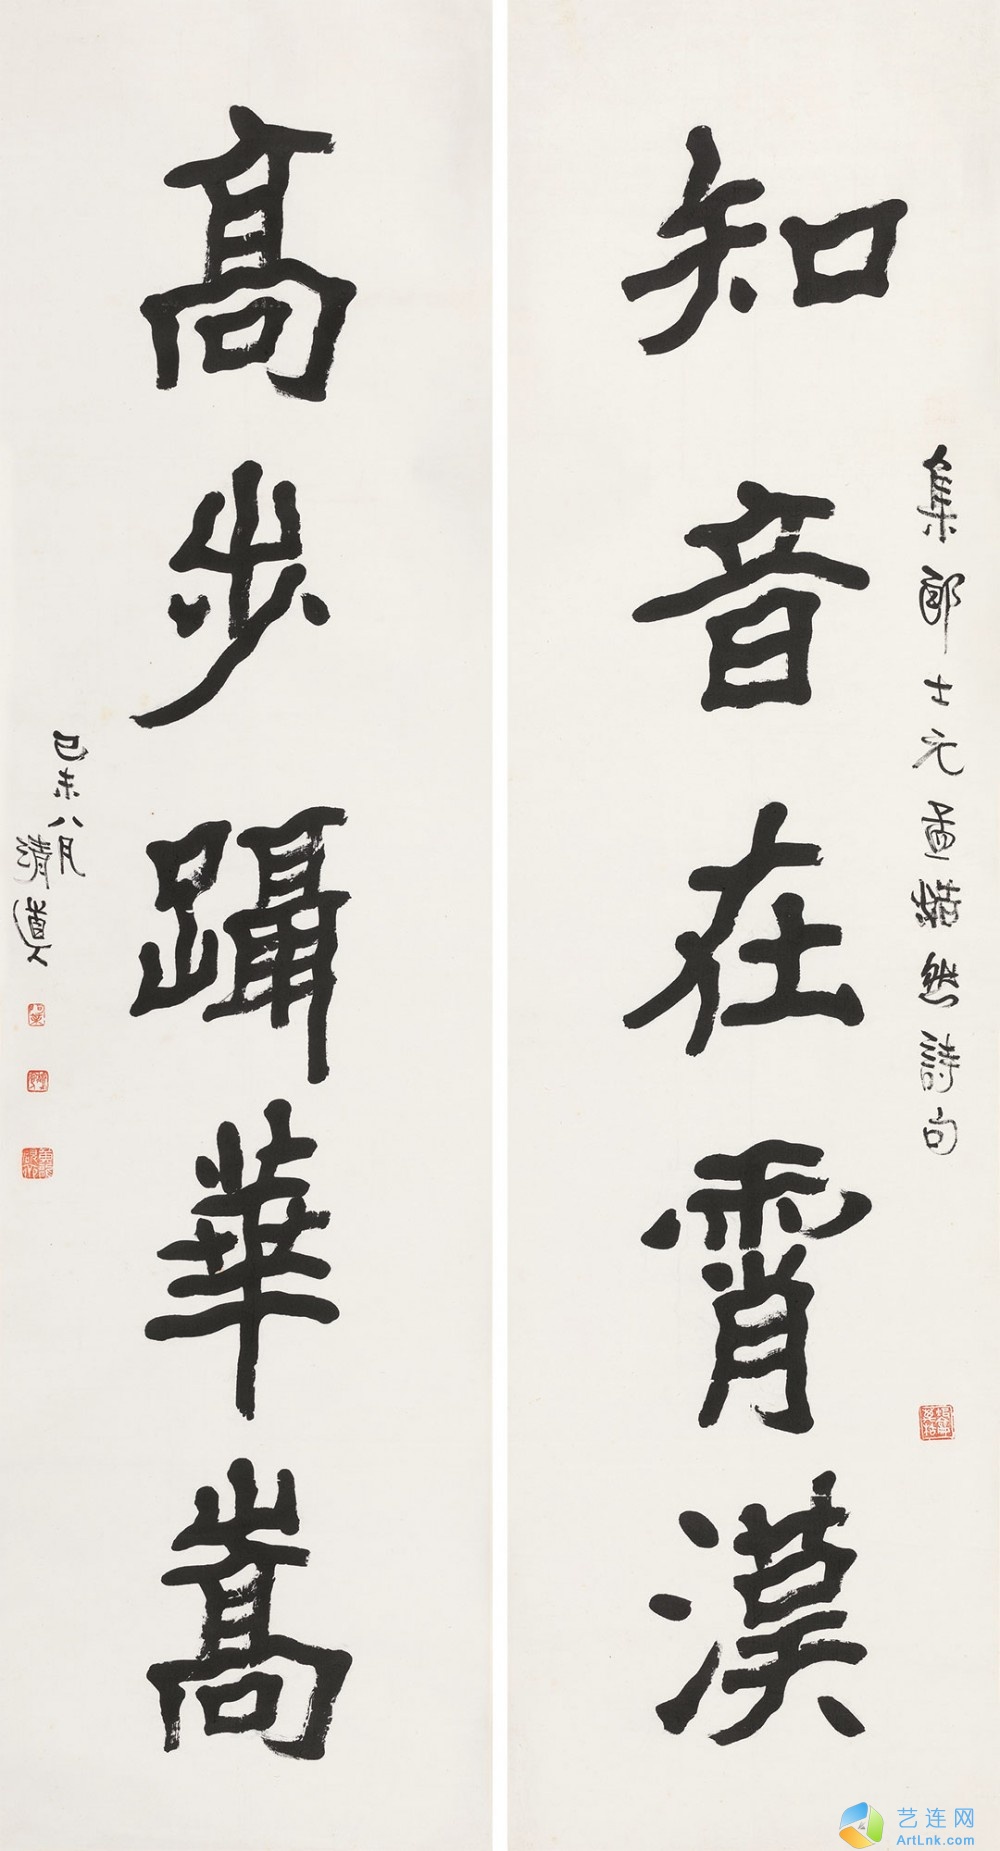 知音在霄漢
集郎士元孟浩然詩句
高步躡華嵩
己未八月
清道人
艺连网
ArtLnk.com